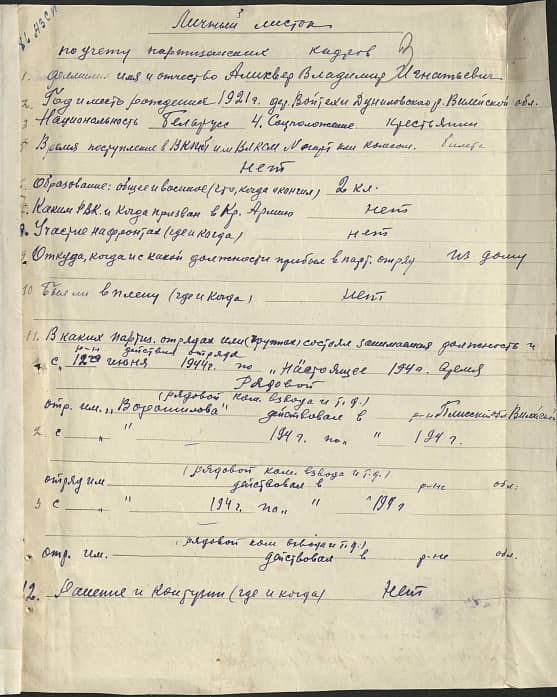 Личный листок
по учету партизанских кадров
1. Фамилия имя и отчество Владимир Игнатьевич
2. Год и место рождения 1921 г. дер. Войтехи Дуниловского р. Вилейской обл.
3 Национальность Беларусс 4. Соцположение крестьянин
5 Время поступления в ВКП(б) или ВЛКСМ № парт или комсом. билета
нет
6. Образование: общее и военное (что, когда окончил) 2 кл.
Каким РВК и когда призван в Кр. Армию нет
8. Участие на фронтах (где и когда) нет
9 Откуда, когда и с какой должности прибыл в парт. отряд из дому
10 Был ли в плену (где и когда) нет
11. В каких партиз. отрядах или (группах) состоял занимаемая должность и
р-н действия отряда
с „ 12го июня 1944 г. по „ Настоящее 194 г. время
Рядовой
(рядовой ком. взвода и т.д.)
отр. им. „Ворошилова" действовал в р-не Плисский обл Вилейской
2 с „ " 194 г. по „ " 194 г.
(рядовой ком. взвода и т.д.)
отряд им. действовал в р-не обл.
3 с „ " 194 г. по „ " 194 г
(рядовой ком взвода и т.д.)
отр. им. действовал в р-не обл.
12. Ранение и контузии (где и когда) Нет